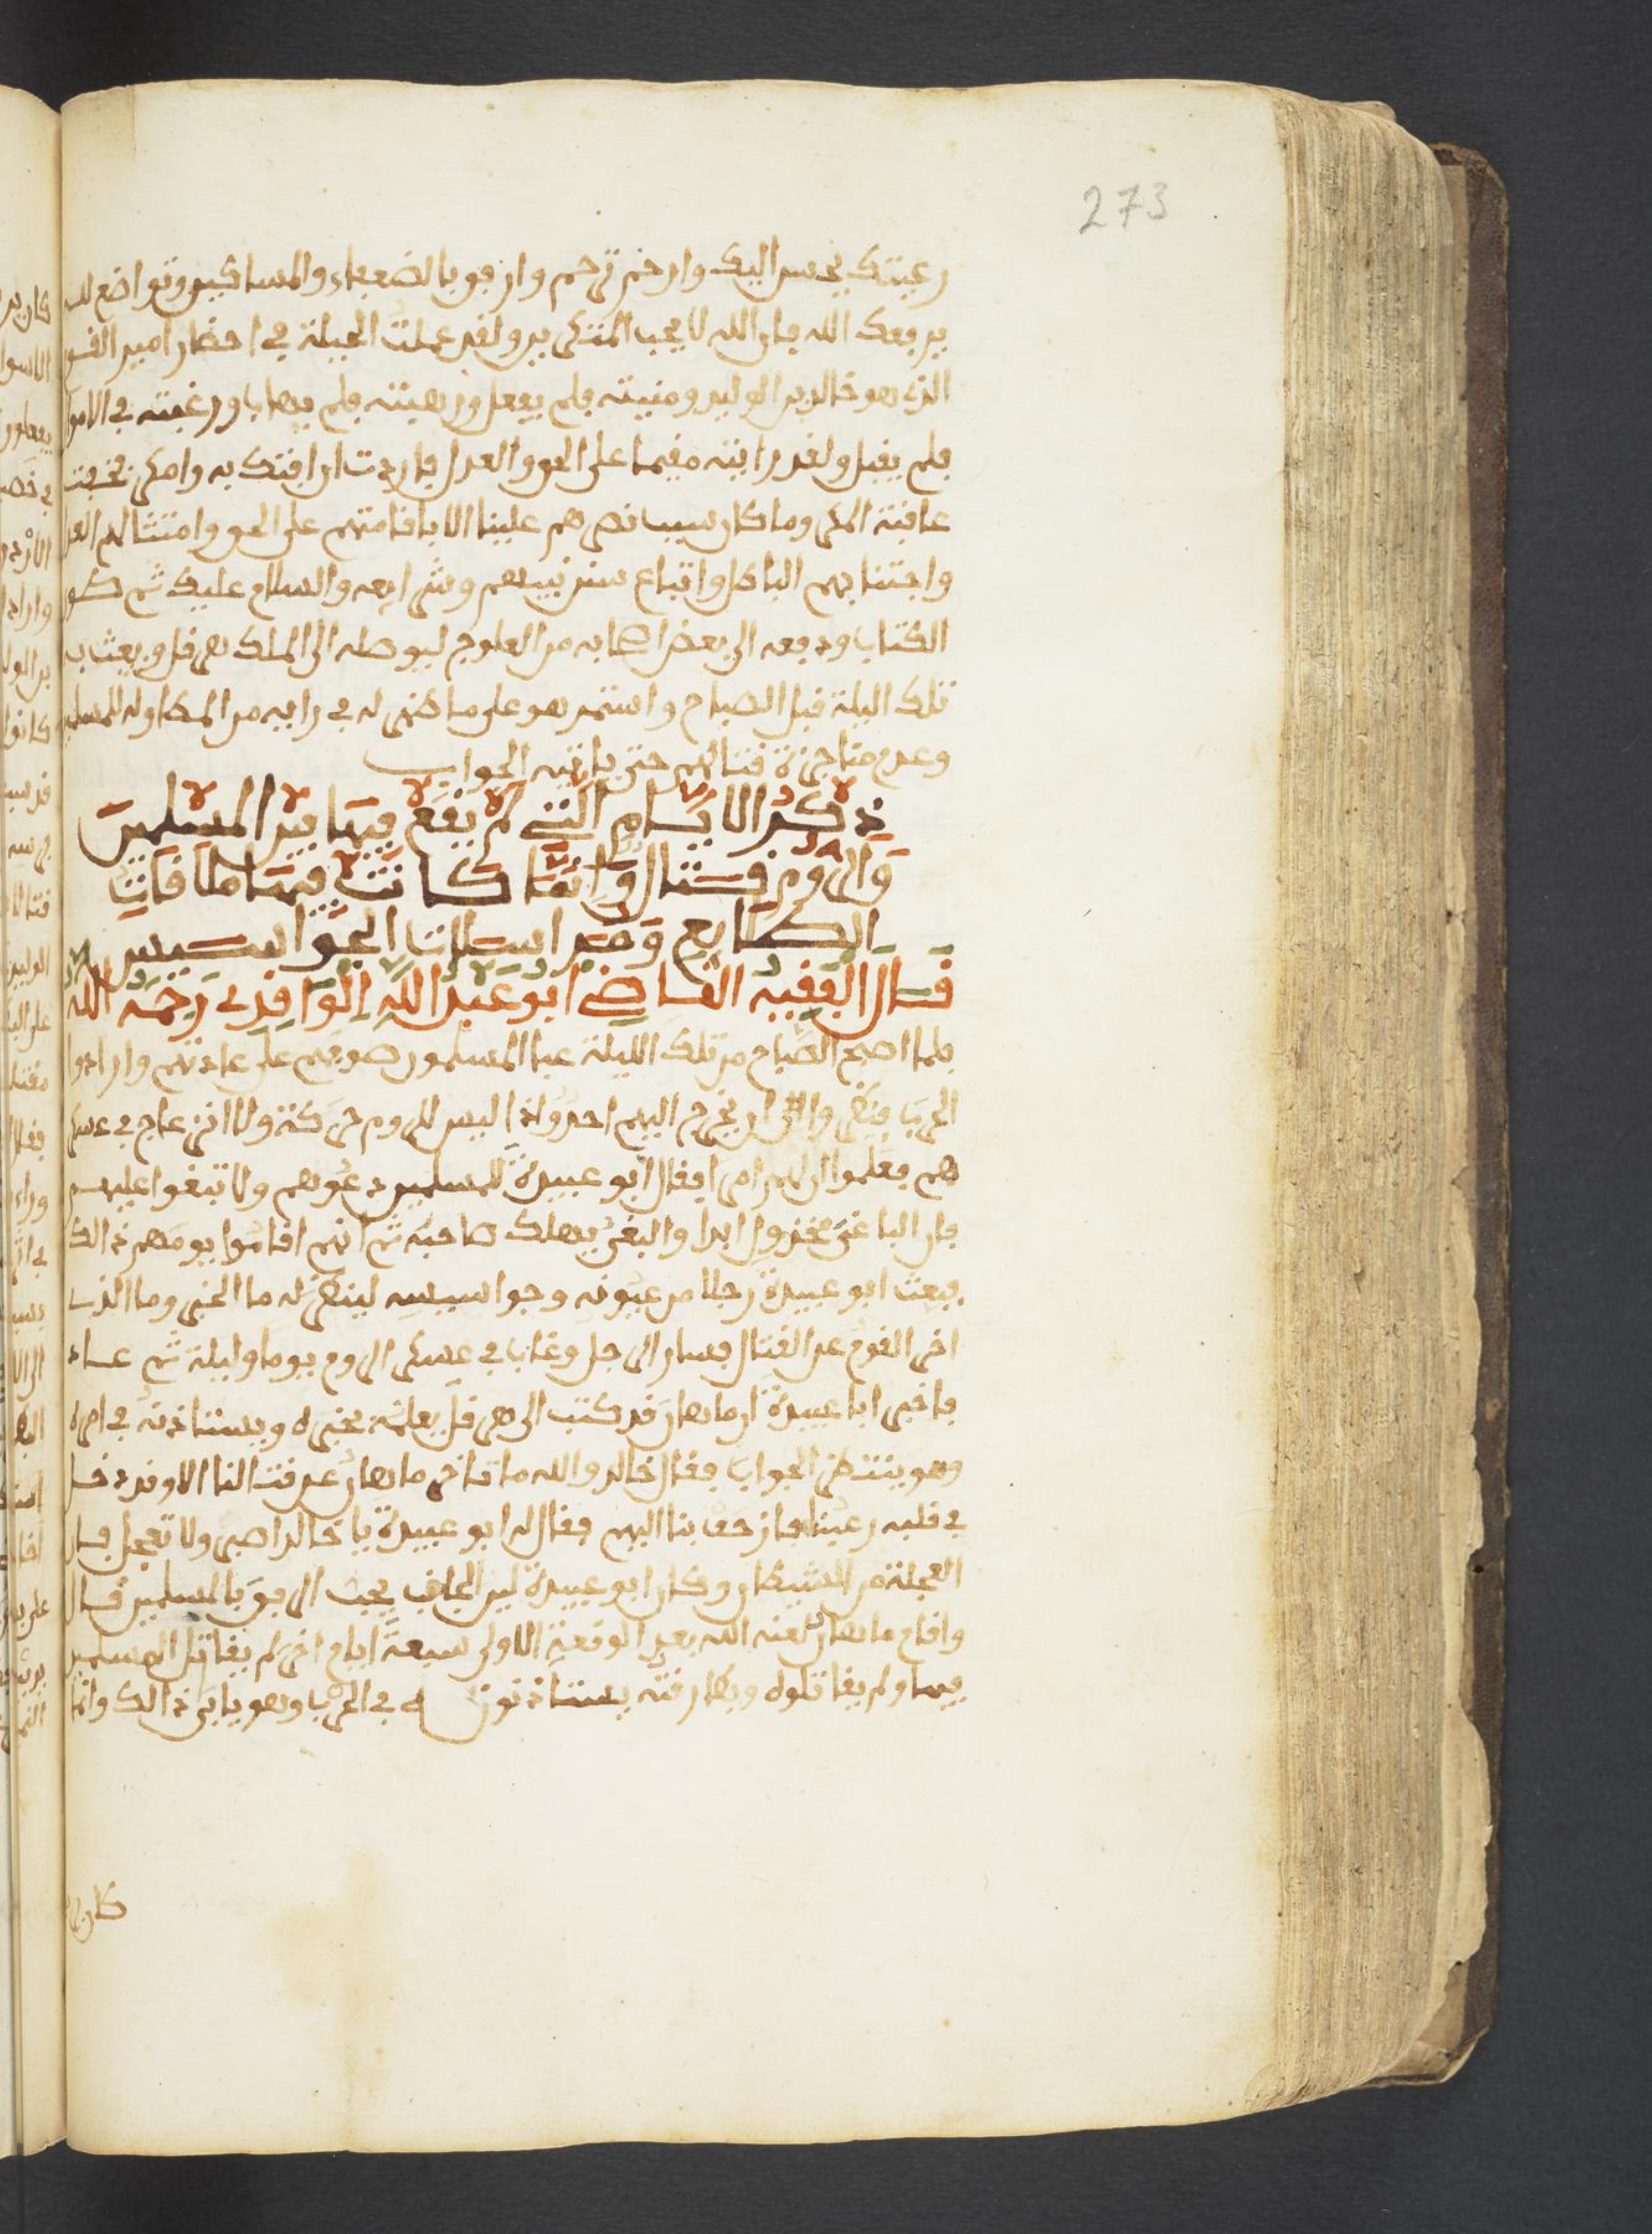 273
رعيتك يحسن اليك وارحم ترحم وارفق بالضعفاء والمساكين وتواضع لله
يرفعك الله فان الله لا يحب المتكبرين ولقد عملت الحيلة في احضار امير القوم
الذي هو خالد بن الوليد ومنيته فلم يفعل ورهبته فلم يهاب ورغبته في الاموال
فلم يقبل ولقد رايته مقيما على الحق والعدل فاردت ان افتك به وامكر فخفت
عاقبة المكر وما كان سبب نصرهم علينا الا باقامتهم على الحق وامتثالهم العدل
واجتنابهم الباطل واتباع سنن نبيهم وشرايعه والسلام عليك ثم طوى
الكتاب ودفعه الى بعض اصحابه من العلوج ليوصله الى الملك هرقل وبعث به
تلك اليلة قبل الصباح واستمر هو على ما ظهر له في رايه من المطاولة للمسلمين
وعدم مناجزة قتالهم حتى ياتيه الجواب
ذكر الايام التي لم يقع فيها بين المسلمين
والروم قتال وانما كانت فيها ملاقات
الطلايع وقصد ارسالات الجواسيس
قال الفقيه القاضي ابو عبد الله الواقدي رحمه الله
فلما اصبح الصباح من تلك الليلة عبا المسلمون صفوفهم على عادتهم وارادوا
الحرب فنظروا ان يخرج اليهم احد واذا ليس للروم حركة ولا انزعاج في عسكر
هم فعلموا ان لهم امرا فقال ابو عبيدة للمسلمين دعوهم ولا تبغوا عليهم
فان الباغي مخذول ابدا والبغي يهلك صاحبه ثم انهم اقاموا يومهم ذالك
فبعث ابو عبيدة رجلا من عيونه وجواسيسه لينظر له ما الخبر وما الذي
اخر القوم عن القتال فسار الرجل وغاب في عسكر الروم يوما وليلة ثم عاد
فاخبر ابا عبيدة ان ماهان قد كتب الى هرقل يعلمه بخبره ويستاذنه في امره
وهو ينتظر الجواب فقال خالد والله ما تاخر ماهان عن قتالنا الا وقد دخل
في قلبه رعبنا فازحف بنا اليهم فقال له ابو عبيدة يا خالد اصبر ولا تعجل فان
العجلة من الشيطان وكان ابو عبيدة لين الجانب يحب الرفق بالمسلمين قال
واقام ماهان لعنه الله بعد الوقعة الاولى سبعة ايام اخر لم يقاتل المسلمين
فيها ولم يقاتلوه وبطارقته يستاذنونه في الحرب وهو يابى ذالك وانما
كان